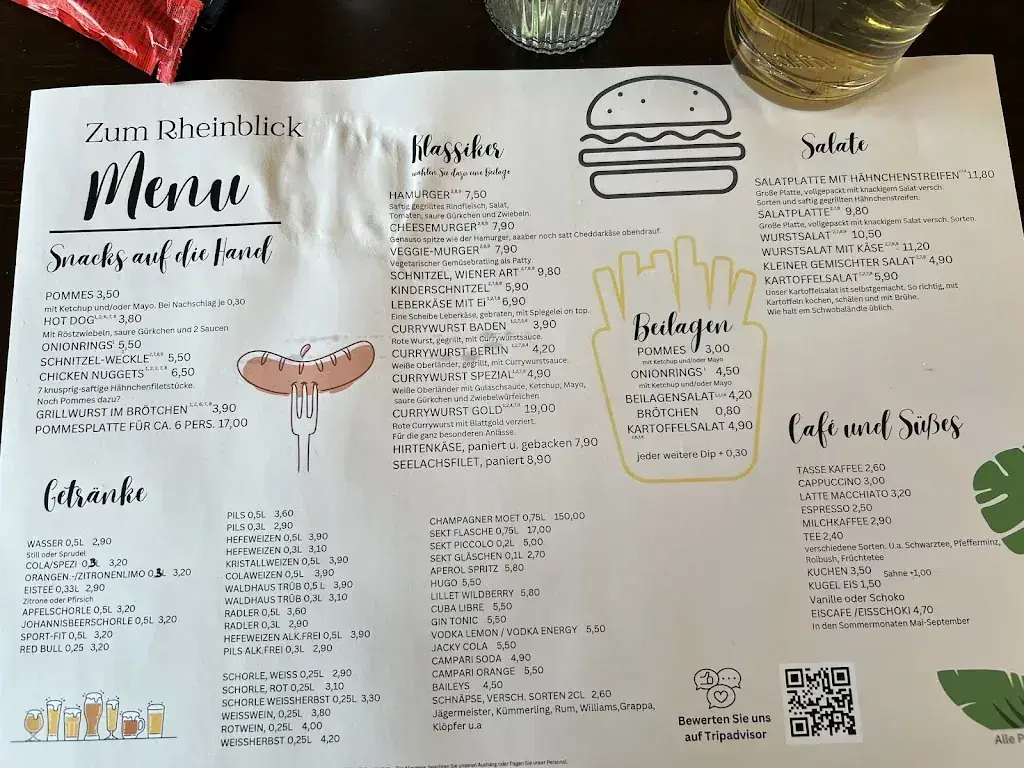 Zum Rheinblick
Menu
Snacks auf die Hand
POMMES 3,50
mit Ketchup und/oder Mayo. Bei Nachschlag je 0,30
HOT DOG 3,80
Mit Röstzwiebeln, saure Gürkchen und 2 Saucen
ONIONRINGS 5,50
SCHNITZEL-WECKLE 5,50
CHICKEN NUGGETS 6,50
7 knusprig-saftige Hähnchenfiletstücke.
Noch Pommes dazu?
GRILLWURST IM BRÖTCHEN 3,90
POMMESPLATTE FÜR CA. 6 PERS. 17,00
Klassiker
wählen Sie dazu eine Beilage
HAMURGER 7,50
Saftig gegrilltes Rindfleisch, Salat,
Tomaten, saure Gürkchen und Zwiebeln.
CHEESEMURGER 7,90
Genauso spitze wie der Hamurger, aaaber noch satt Cheddarkäse obendrauf.
VEGGIE-MURGER 7,90
Vegetarischer Gemüsebratling als Patty.
SCHNITZEL, WIENER ART 9,80
KINDERSCHNITZEL 5,90
LEBERKÄSE MIT Ei 6,90
Eine Scheibe Leberkäse, gebraten, mit Spiegelei on top.
CURRYWURST BADEN 3,90
Rote Wurst, gegrillt, mit Currywurstsauce.
CURRYWURST BERLIN 4,20
Weiße Oberländer, gegrillt, mit Currywurstsauce.
CURRYWURST SPEZIAL 4,90
Weiße Oberländer mit Gulaschsauce, Ketchup, Mayo,
saure Gürkchen und Zwiebelwürfelchen
CURRYWURST GOLD 19,00
Rote Currywurst mit Blattgold verziert.
Für die ganz besonderen Anlässe.
HIRTENKÄSE, paniert u. gebacken 7,90
SEELACHSFILET, paniert 8,90
Beilagen
POMMES 3,00
mit Ketchup und/oder Mayo
ONIONRINGS 4,50
mit Ketchup und/oder Mayo
BEILAGENSALAT 4,20
BRÖTCHEN 0,80
KARTOFFELSALAT 4,90
jeder weitere Dip + 0,30
Salate
SALATPLATTE MIT HÄHNCHENSTREIFEN 11,80
Große Platte, vollgepackt mit knackigem Salat versch.
Sorten und saftig gegrillten Hähnchenstreifen.
SALATPLATTE 9,80
Große Platte, vollgepackt mit knackigem Salat versch. Sorten.
WURSTSALAT 10,50
WURSTSALAT MIT KÄSE 11,20
KLEINER GEMISCHTER SALAT 4,90
KARTOFFELSALAT 5,90
Unser Kartoffelsalat ist selbstgemacht. So richtig, mit
Kartoffeln kochen, schälen und mit Brühe.
Wie halt em Schwobaländle üblich.
Café und Süßes
TASSE KAFFEE 2,60
CAPPUCCINO 3,00
LATTE MACCHIATO 3,20
ESPRESSO 2,50
MILCHKAFFEE 2,90
TEE 2,40
verschiedene Sorten. U.a. Schwarztee, Pfefferminz,
Roibush, Früchtetee
KUCHEN 3,50 Sahne +1,00
KUGEL EIS 1,50
Vanille oder Schoko
EISCAFE /EISSCHOKI 4,70
In den Sommermonaten Mai-September
Getränke
WASSER 0,5L 2,90
Still oder Sprudel
COLA/SPEZI 0,3L 3,20
ORANGEN.-/ZITRONENLIMO 0,3L 3,20
EISTEE 0,33L 2,90
Zitrone oder Pfirsich
APFELSCHORLE 0,5L 3,20
JOHANNISBEERSCHORLE 0,5L 3,20
SPORT-FIT 0,5L 3,20
RED BULL 0,25 3,20
PILS 0,5L 3,60
PILS 0,3L 2,90
HEFEWEIZEN 0,5L 3,90
HEFEWEIZEN 0,3L 3,10
KRISTALLWEIZEN 0,5L 3,90
COLAWEIZEN 0,5L 3,90
WALDHAUS TRÜB 0,5 L 3,90
WALDHAUS TRÜB 0,3L 3,10
RADLER 0,5L 3,60
RADLER 0,3L 2,90
HEFEWEIZEN ALK.FREI 0,5L 3,90
PILS ALK.FREI 0,3L 2,90
SCHORLE, WEISS 0,25L 2,90
SCHORLE, ROT 0,25L 3,10
SCHORLE WEISSHERBST 0,25L 3,30
WEISSWEIN, 0,25L 3,80
ROTWEIN, 0,25L 4,00
WEISSHERBST 0,25L 4,20
CHAMPAGNER MOET 0,75L 150,00
SEKT FLASCHE 0,75L 17,00
SEKT PICCOLO 0,2L 5,00
SEKT GLÄSCHEN 0,1L 2,70
APEROL SPRITZ 5,80
HUGO 5,50
LILLET WILDBERRY 5,80
CUBA LIBRE 5,50
GIN TONIC 5,50
VODKA LEMON / VODKA ENERGY 5,50
JACKY COLA 5,50
CAMPARI SODA 4,90
CAMPARI ORANGE 5,50
BAILEYS 4,50
SCHNÄPSE, VERSCH. SORTEN 2CL 2,60
Jägermeister, Kümmerling, Rum, Williams,Grappa,
Klöpfer u.a
Bewerten Sie uns
auf Tripadvisor
Alle P